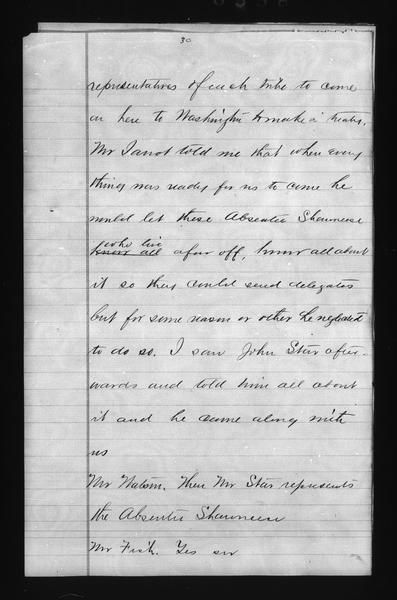 30
representatives of each tribe to come
in here to Washington to make a treaty.
Mr Janot told me that when every
thing was ready for us to come he
would let these Absentee Shawnees
who live
know all afar off, know all about
it so they could send delegates
but for some reason or other he neglected
to do so. I saw John Star after-
wards and told him all about
it and he came along with
us
Mr Watson. Then Mr Star represents
the Absentee Shawnees
Mr Fish. Yes sir